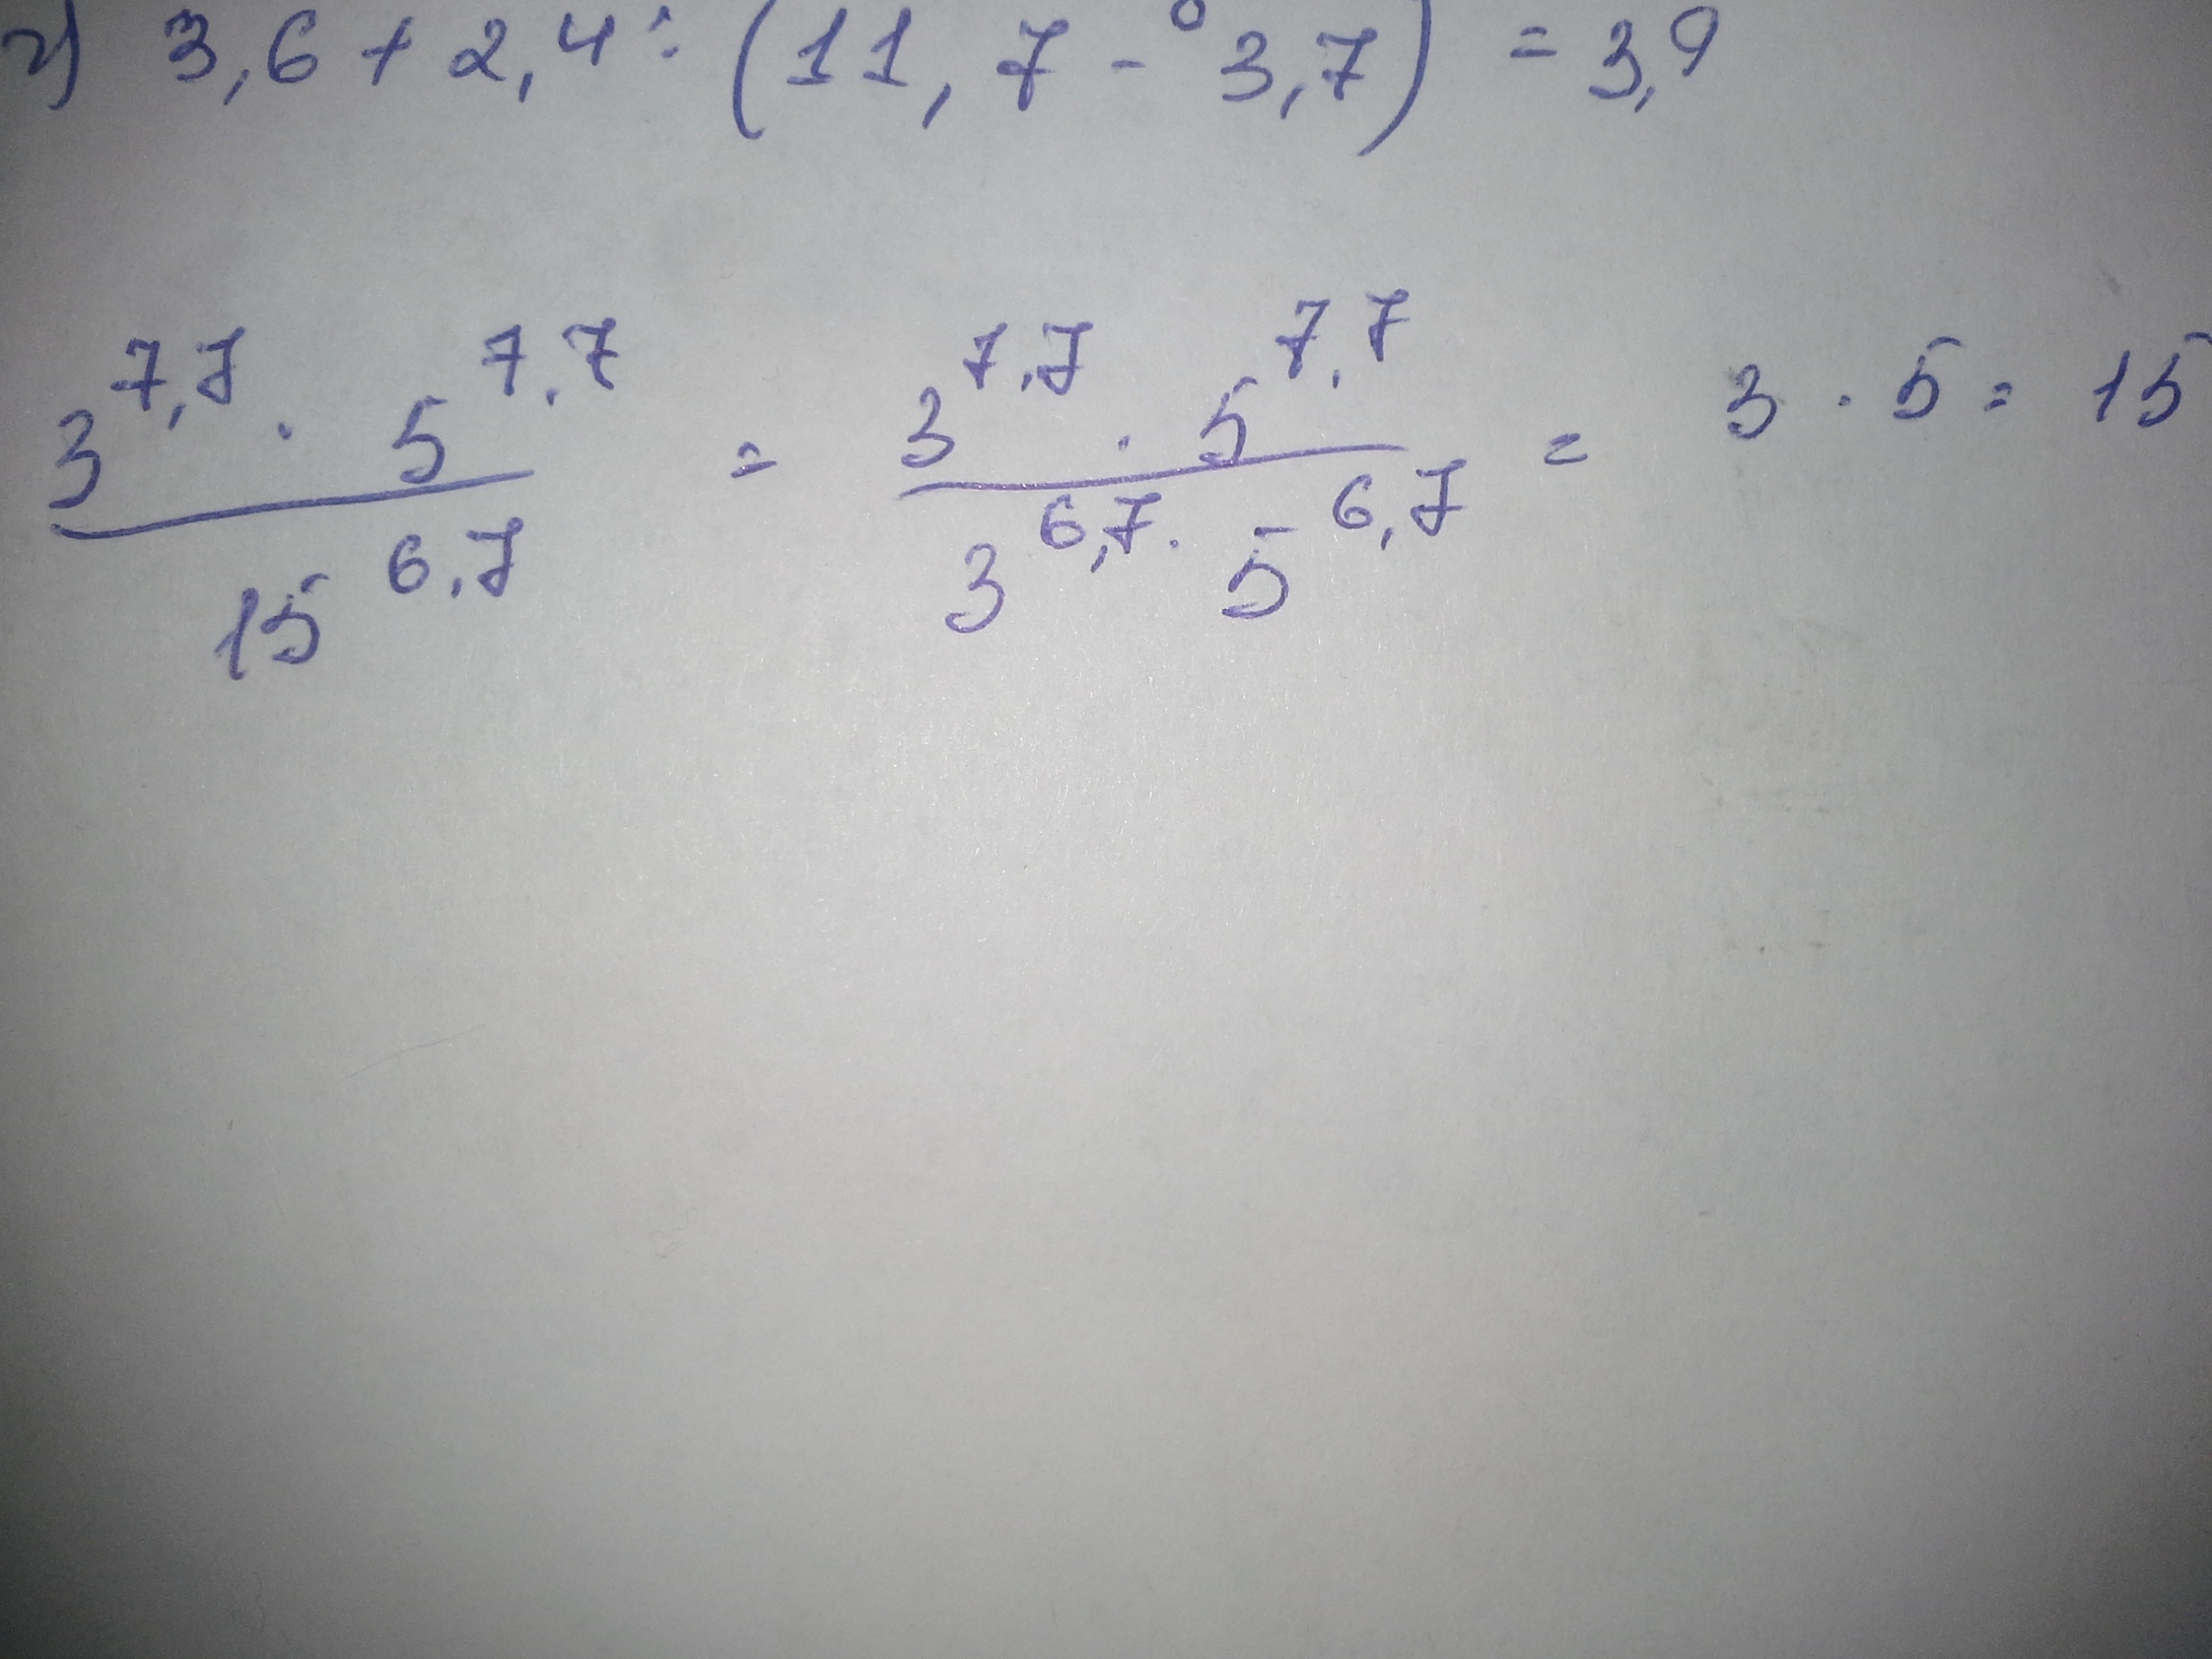 г) 3,6 + 2,4 : (11,7 - 3,7) = 3,9
3^7,7 · 5^7,7 / 15^6,7 = 3^7,7 · 5^7,7 / 3^6,7 · 5^6,7 = 3 · 5 = 15